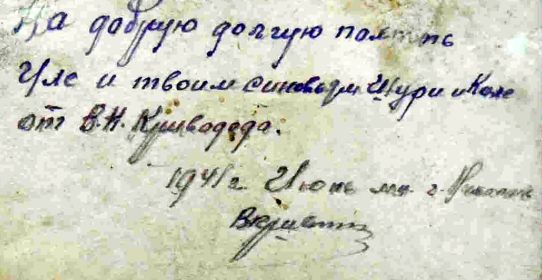 На добрую долгую память
Уле и твоим синовьям Шури и Коле
от В.Н. Криводеда.
1941 г Июнь м-ц г.